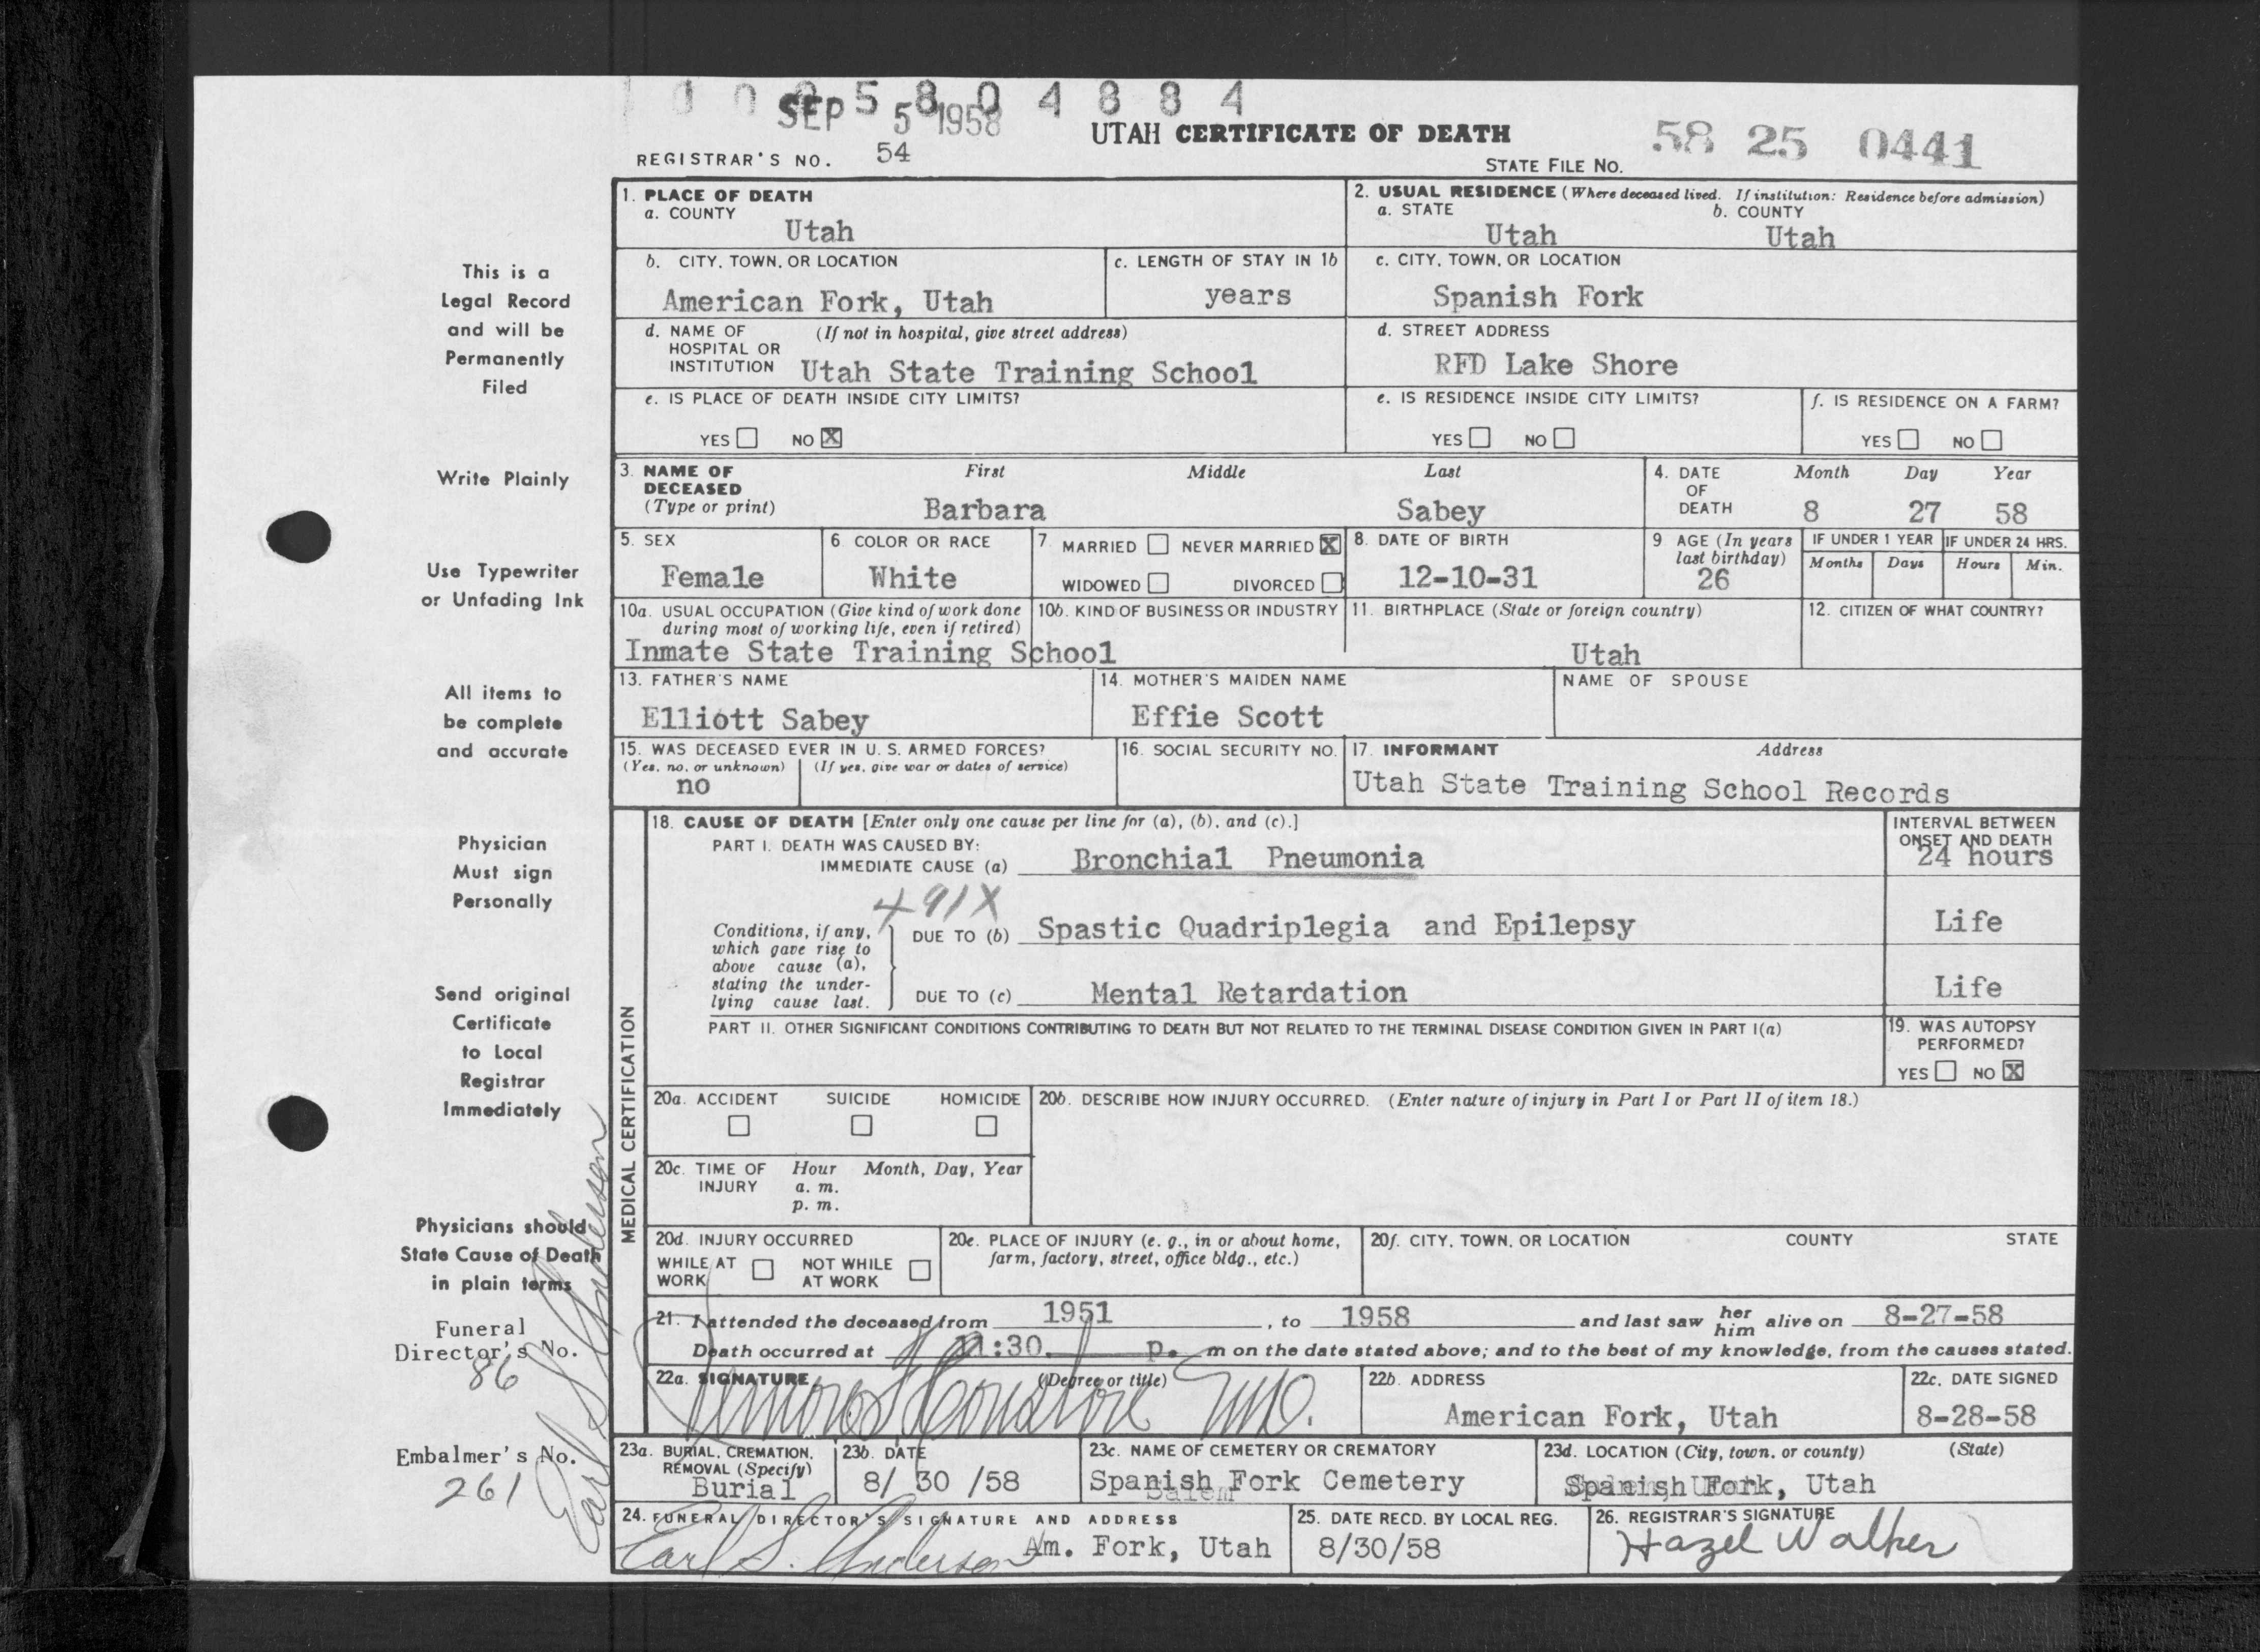 1 0 0 5 8 0 4 8 8 4
SEP 5 1958
UTAH CERTIFICATE OF DEATH
58 25 0441
REGISTRAR'S NO. 54
STATE FILE NO.
This is a
Legal Record
and will be
Permanently
Filed
Write Plainly
Use Typewriter
or Unfading Ink
All items to
be complete
and accurate
Physician
Must sign
Personally
Send original
Certificate
to Local
Registrar
Immediately
Physicians should
State Cause of Death
in plain terms
Funeral
Director's No.
86
Embalmer's No.
261
Earl S Anderson
1. PLACE OF DEATH
a. COUNTY
Utah
2. USUAL RESIDENCE (Where deceased lived. If institution: Residence before admission)
a. STATE b. COUNTY
Utah Utah
b. CITY, TOWN, OR LOCATION
American Fork, Utah
c. LENGTH OF STAY IN 1b
years
c. CITY, TOWN, OR LOCATION
Spanish Fork
d. NAME OF (If not in hospital, give street address)
HOSPITAL OR
INSTITUTION Utah State Training School
d. STREET ADDRESS
RFD Lake Shore
e. IS PLACE OF DEATH INSIDE CITY LIMITS?
YES NO X
e. IS RESIDENCE INSIDE CITY LIMITS?
YES NO
f. IS RESIDENCE ON A FARM?
YES NO
3. NAME OF First Middle Last
DECEASED
(Type or print) Barbara Sabey
4. DATE Month Day Year
OF
DEATH 8 27 58
5. SEX
Female
6. COLOR OR RACE
White
7. MARRIED NEVER MARRIED X
WIDOWED DIVORCED
8. DATE OF BIRTH
12-10-31
9 AGE (In years
last birthday)
26
IF UNDER 1 YEAR
Months Days
IF UNDER 24 HRS.
Hours Min.
10a. USUAL OCCUPATION (Give kind of work done
during most of working life, even if retired)
Inmate State Training School
10b. KIND OF BUSINESS OR INDUSTRY
11. BIRTHPLACE (State or foreign country)
Utah
12. CITIZEN OF WHAT COUNTRY?
13. FATHER'S NAME
Elliott Sabey
14. MOTHER'S MAIDEN NAME
Effie Scott
NAME OF SPOUSE
15. WAS DECEASED EVER IN U. S. ARMED FORCES?
(Yes, no, or unknown) (If yes, give war or dates of service)
no
16. SOCIAL SECURITY NO.
17. INFORMANT Address
Utah State Training School Records
MEDICAL CERTIFICATION
18. CAUSE OF DEATH [Enter only one cause per line for (a), (b), and (c).]
PART I. DEATH WAS CAUSED BY:
IMMEDIATE CAUSE (a) Bronchial Pneumonia
INTERVAL BETWEEN
ONSET AND DEATH
24 hours
491X
Conditions, if any,
which gave rise to
above cause (a),
stating the under-
lying cause last.
DUE TO (b) Spastic Quadriplegia and Epilepsy
Life
DUE TO (c) Mental Retardation
Life
PART II. OTHER SIGNIFICANT CONDITIONS CONTRIBUTING TO DEATH BUT NOT RELATED TO THE TERMINAL DISEASE CONDITION GIVEN IN PART I(a)
19. WAS AUTOPSY
PERFORMED?
YES NO X
20a. ACCIDENT SUICIDE HOMICIDE
20b. DESCRIBE HOW INJURY OCCURRED. (Enter nature of injury in Part I or Part II of item 18.)
20c. TIME OF Hour Month, Day, Year
INJURY a. m.
p. m.
20d. INJURY OCCURRED
WHILE AT NOT WHILE
WORK AT WORK
20e. PLACE OF INJURY (e. g., in or about home,
farm, factory, street, office bldg., etc.)
20f. CITY, TOWN, OR LOCATION COUNTY STATE
21. I attended the deceased from 1951, to 1958 and last saw her him alive on 8-27-58
Death occurred at 11:30 p. m on the date stated above; and to the best of my knowledge, from the causes stated.
22a. SIGNATURE (Degree or title)
M.D.
22b. ADDRESS
American Fork, Utah
22c. DATE SIGNED
8-28-58
23a. BURIAL, CREMATION,
REMOVAL (Specify)
Burial
23b. DATE
8/ 30 /58
23c. NAME OF CEMETERY OR CREMATORY
Spanish Fork Cemetery
Salem
23d. LOCATION (City, town, or county) (State)
Spanish Fork, Utah
24. FUNERAL DIRECTOR'S SIGNATURE AND ADDRESS
Earl S. Anderson Am. Fork, Utah
25. DATE RECD. BY LOCAL REG.
8/30/58
26. REGISTRAR'S SIGNATURE
Hazel Walker